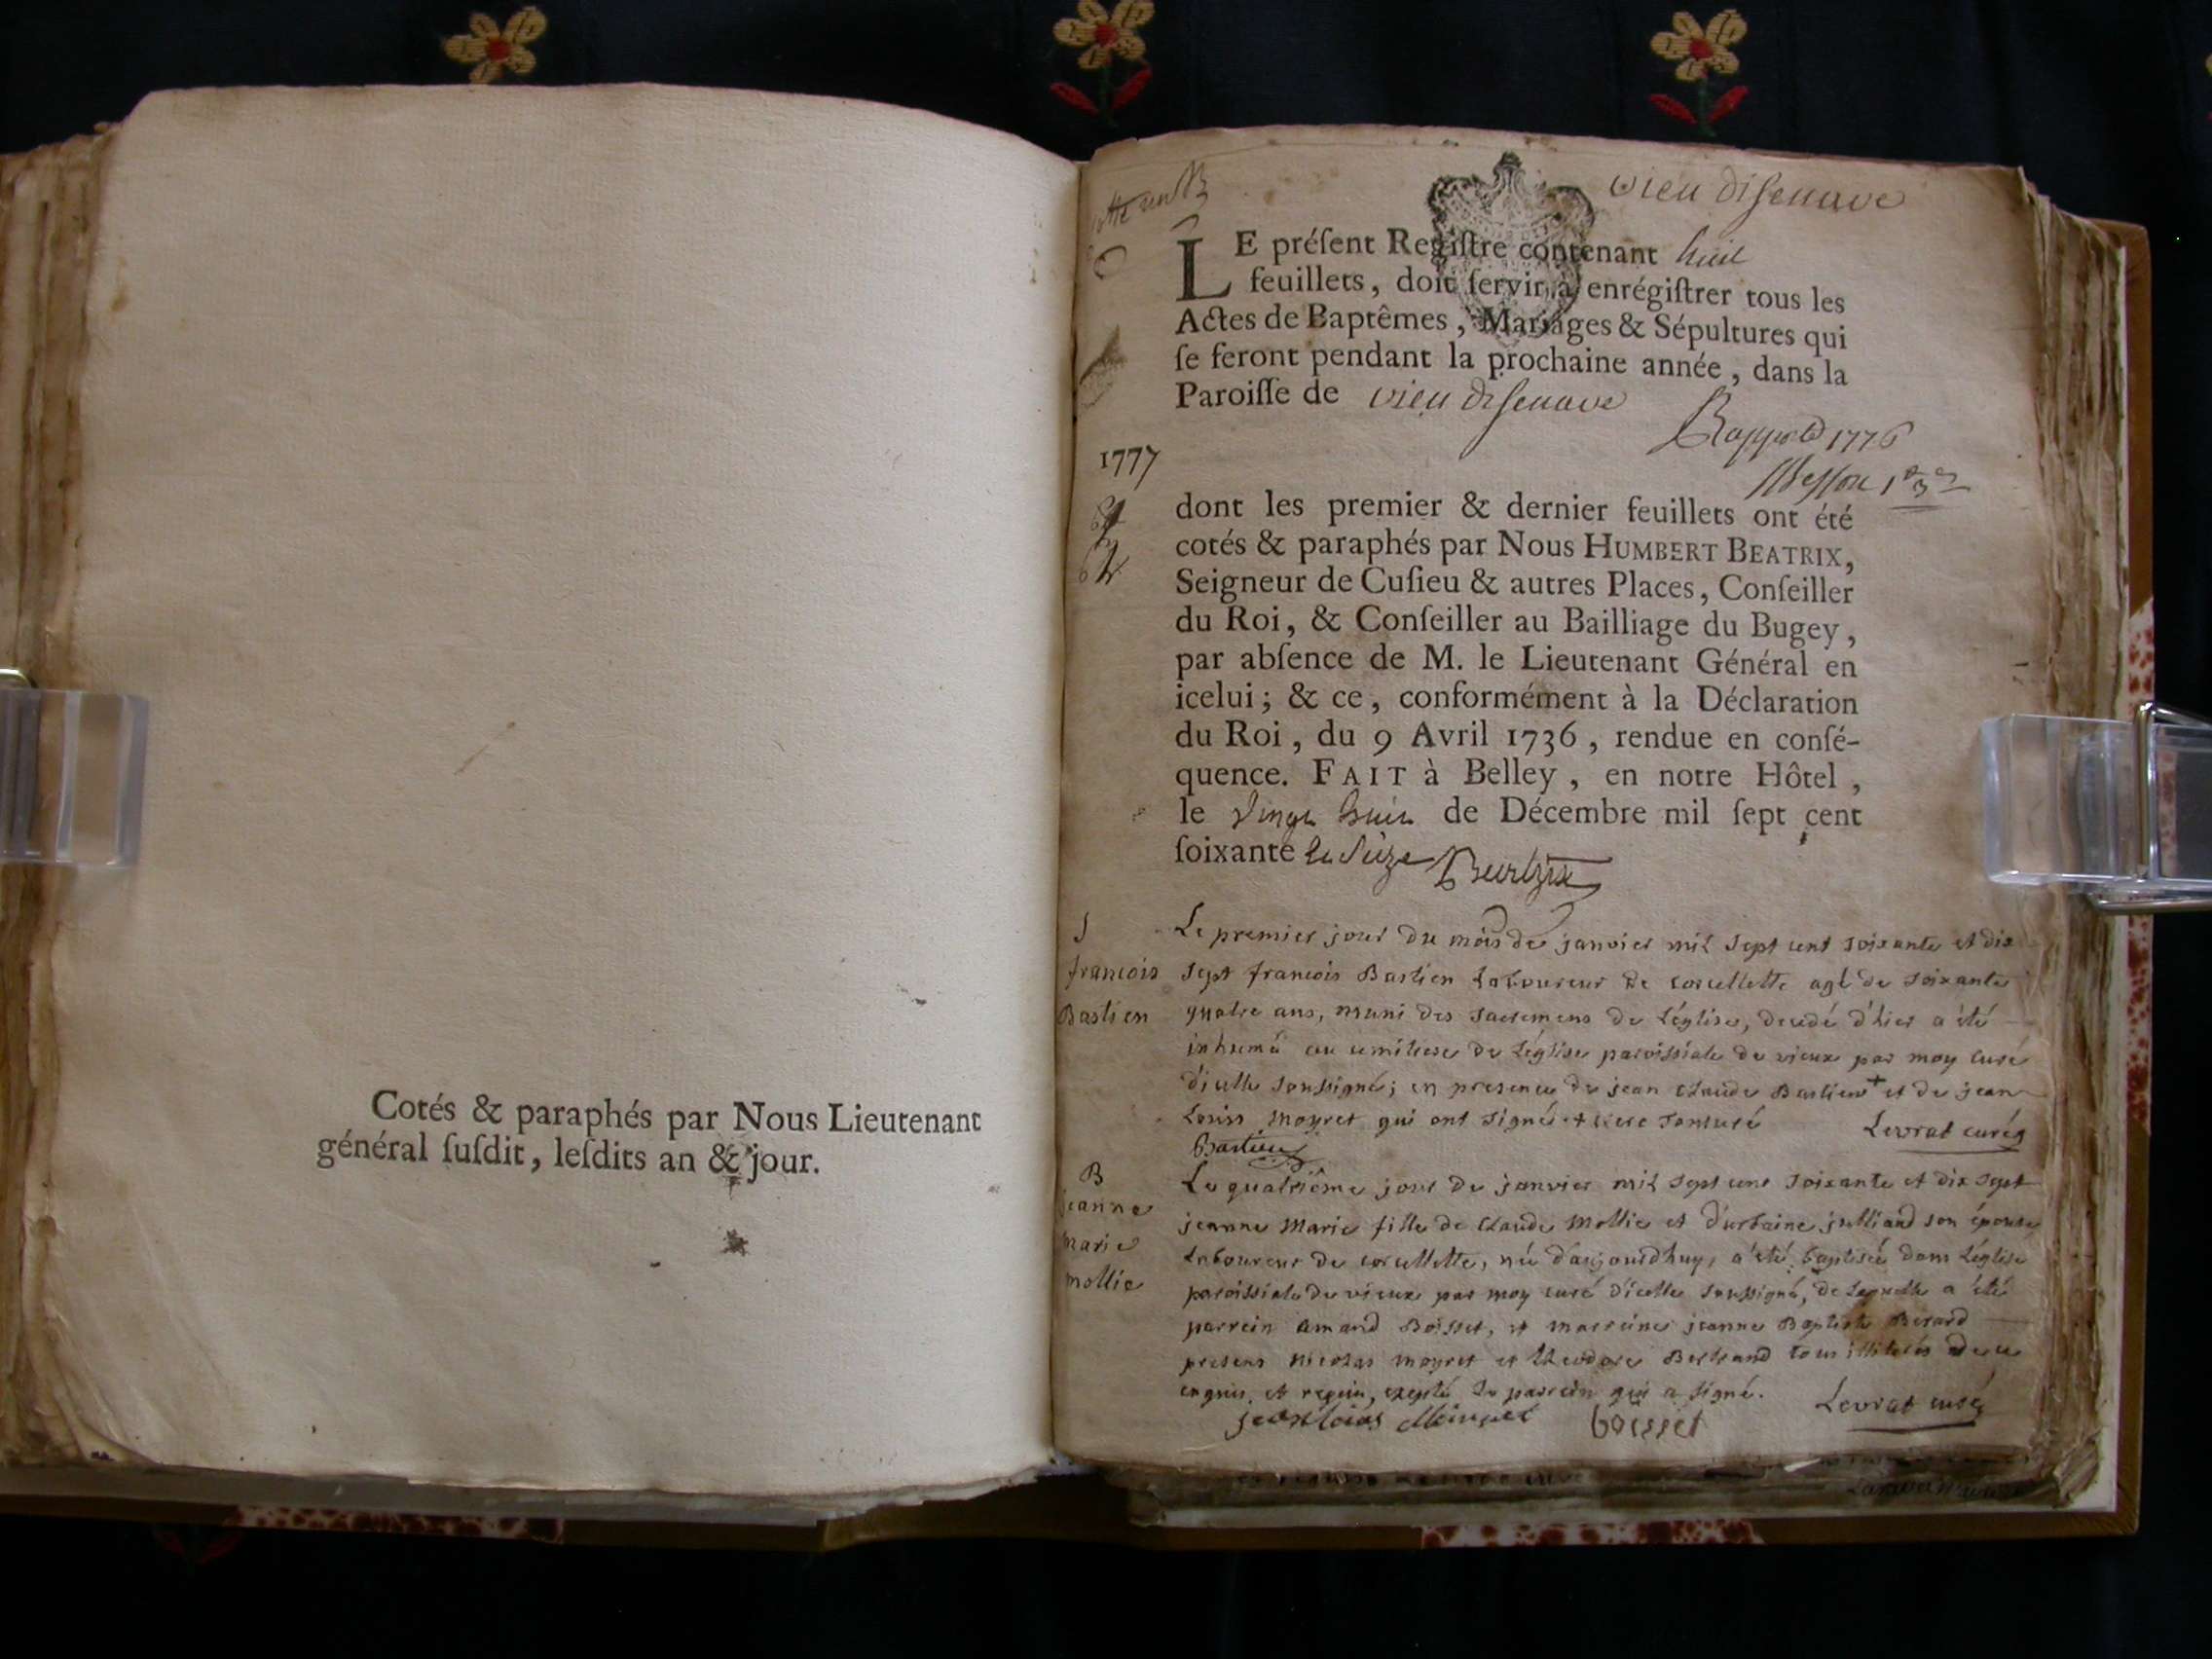 Cotés & paraphés par Nous Lieutenant
général ſuſdit, leſdits an & jour.
vieu disenave
LE préſent Regiſtre contenant huit
feuillets, doit ſervir à enrégiſtrer tous les
Actes de Baptêmes, Mariages & Sépultures qui
ſe feront pendant la prochaine année, dans la
Paroiſſe de vieu disenave
1776
1777
dont les premier & dernier feuillets ont été
cotés & paraphés par Nous HUMBERT BEATRIX,
Seigneur de Cuſieu & autres Places, Conſeiller
du Roi, & Conſeiller au Bailliage du Bugey,
par abſence de M. le Lieutenant Général en
icelui; & ce, conformément à la Déclaration
du Roi, du 9 Avril 1736, rendue en conſé-
quence. FAIT à Belley, en notre Hôtel,
le vingt huit de Décembre mil ſept cent
ſoixante et seize Beatrix
S
francois
Bastien
Le premier jour du mois de janvier mil sept cent soixante et dix
sept francois Bastien Laboureur de corcellette agé de soixante
quatre ans, muni des sacremens de Léglise, decedé d'hier a été
inhumé au cimitiere de Léglise paroissiale de vieux par moy curé
d'icelle soussigné; en presence de jean claude Bastien + et de jean
Louis moyret qui ont signé + clerc tonsuré Levrat curé
Bastien
B
jeanne
marie
mollie
Le quatrième jour de janvier mil sept cent soixante et dix sept
jeanne Marie fille de claude mollie et d'urbaine julliand son épouse
Laboureur de corcellette, née d'aujourdhuy, a été baptisée dans Léglise
paroissiale de vieux par moy curé d'icelle soussigné, de laquelle a été
parrein amand Boisset, et marreine jeanne Baptiste Berard
presens nicolas moyret et theodore Bertrand tous illiterés de ce
enquis, et requis, exepté le parrein qui a signé. Levrat curé
jean loius boisset